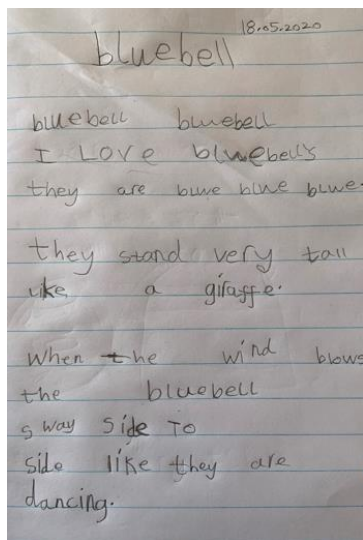 18.05.2020
bluebell
bluebell bluebell
I LOVE bluebell's
they are blue blue blue.
they stand very tall
like a giraffe.
when the wind blows
the bluebell
sway side To
side like they are
dancing.